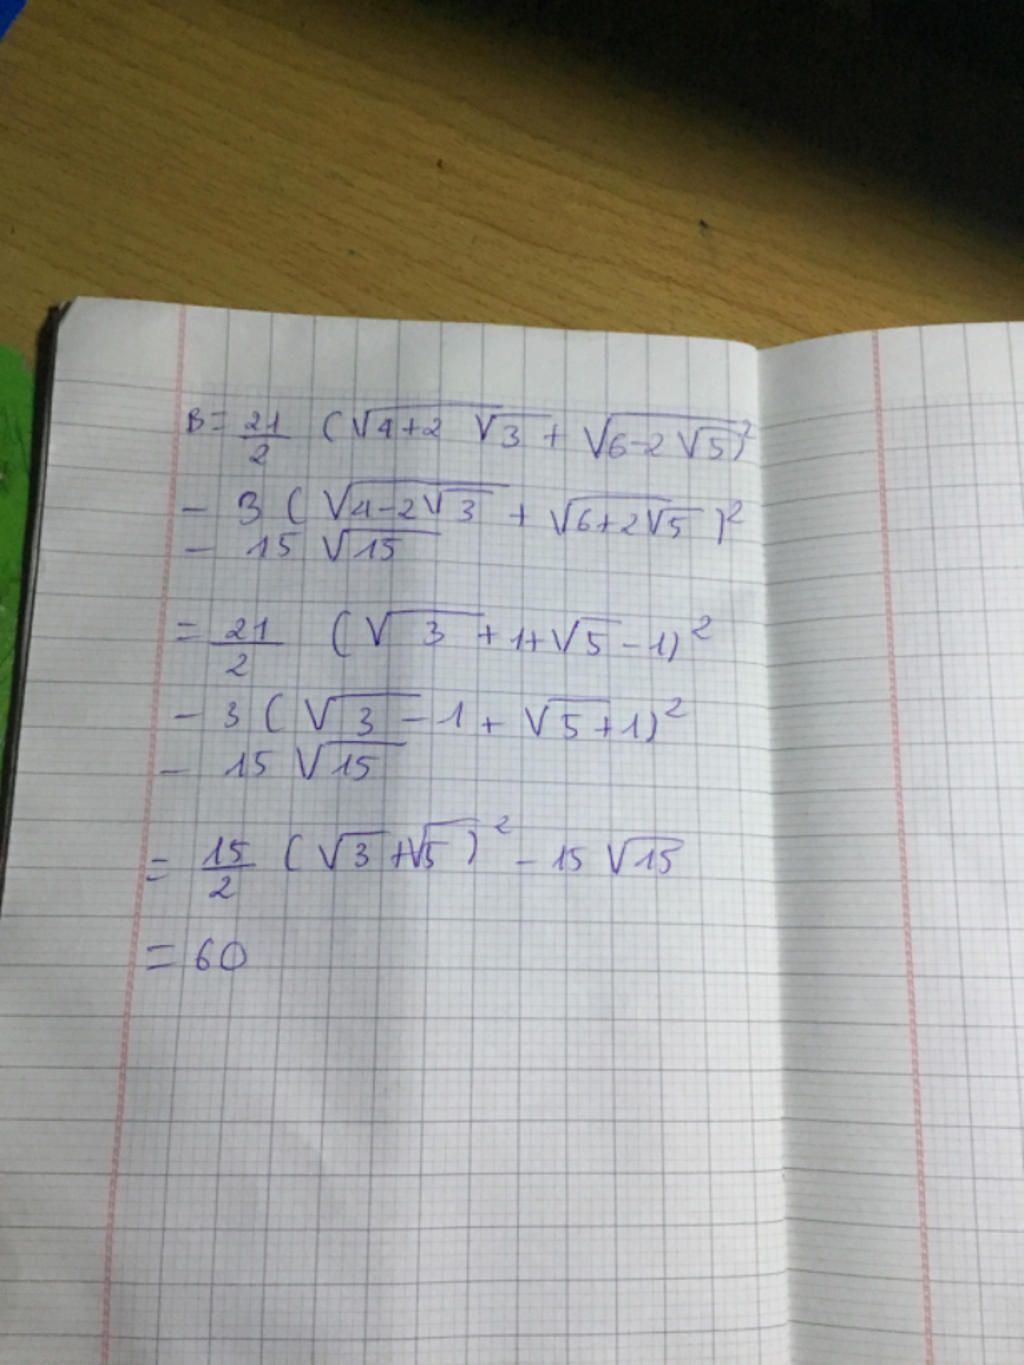 B = 21/2 (√(4+2√3) + √(6-2√5))²
- 3 (√(4-2√3) + √(6+2√5))²
- 15 √15
= 21/2 (√3 + 1 + √5 - 1)²
- 3 (√3 - 1 + √5 + 1)²
- 15 √15
= 15/2 (√3 + √5)² - 15 √15
= 60